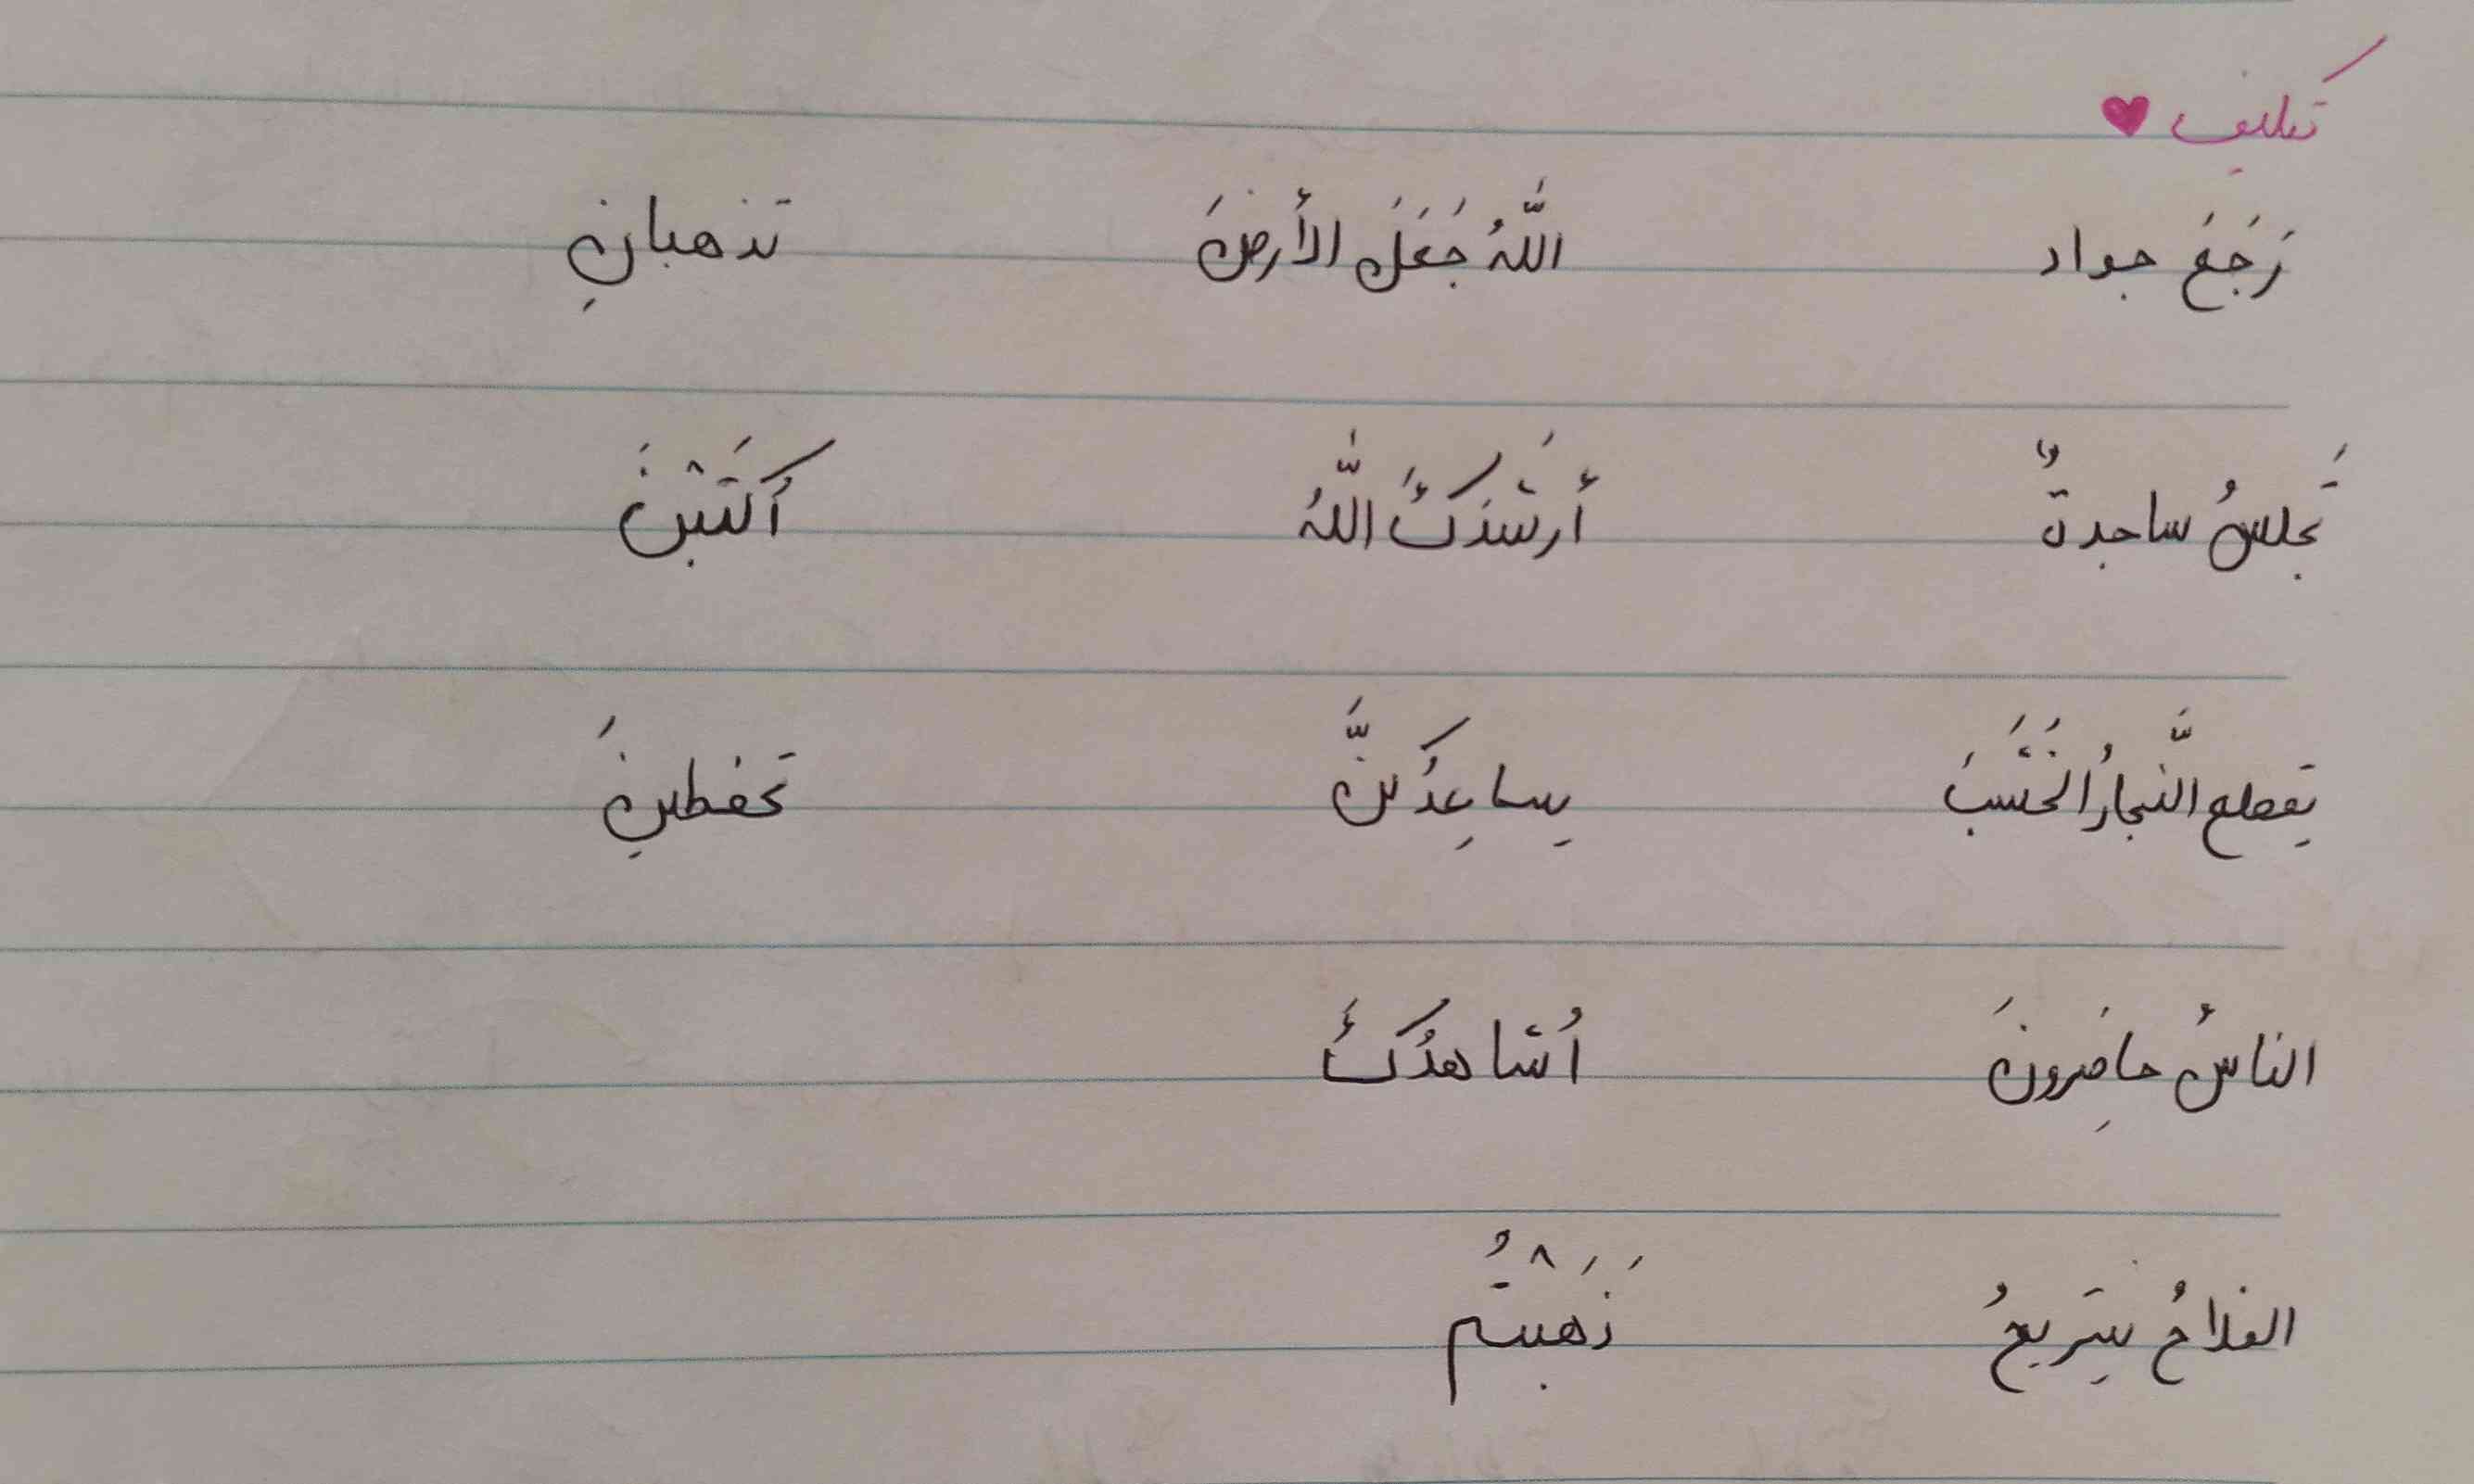 تکلیف ♥
رَجَعَ جواد اللّٰهُ جَعَلَ الأرضَ تذهبانِ
تَجلسُ ساجدةٌ أرشَدَكَ اللّٰهُ أكتَبْنَ
يقطع النَّجارُ الخَشَبَ يساعِدُكُنَّ تحفظينَ
الناسُ حاضِرونَ أُشاهدُكَ
الفلاحُ يَتريحُ ذَهَبْتُم